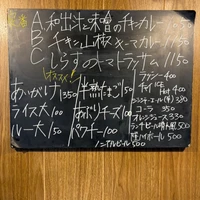 A. 和出汁と味噌のチキンカレー 1150
B. チキンと山椒キーマカレー 1150
C. しらすのトマトラッサム 1150
オススメ!
あいがけ 350
ライス大 100
ルー大 150
半熟たまご 50
あぶりチーズ 100
パクチー 100
ラッシー 400
チャイ ICE 450 Hot 400
ジンジャーエール(辛) 380
コーラ 350
オレンジジュース 330
ランチビール 500
ハイボール 500
ノンアルビール 500